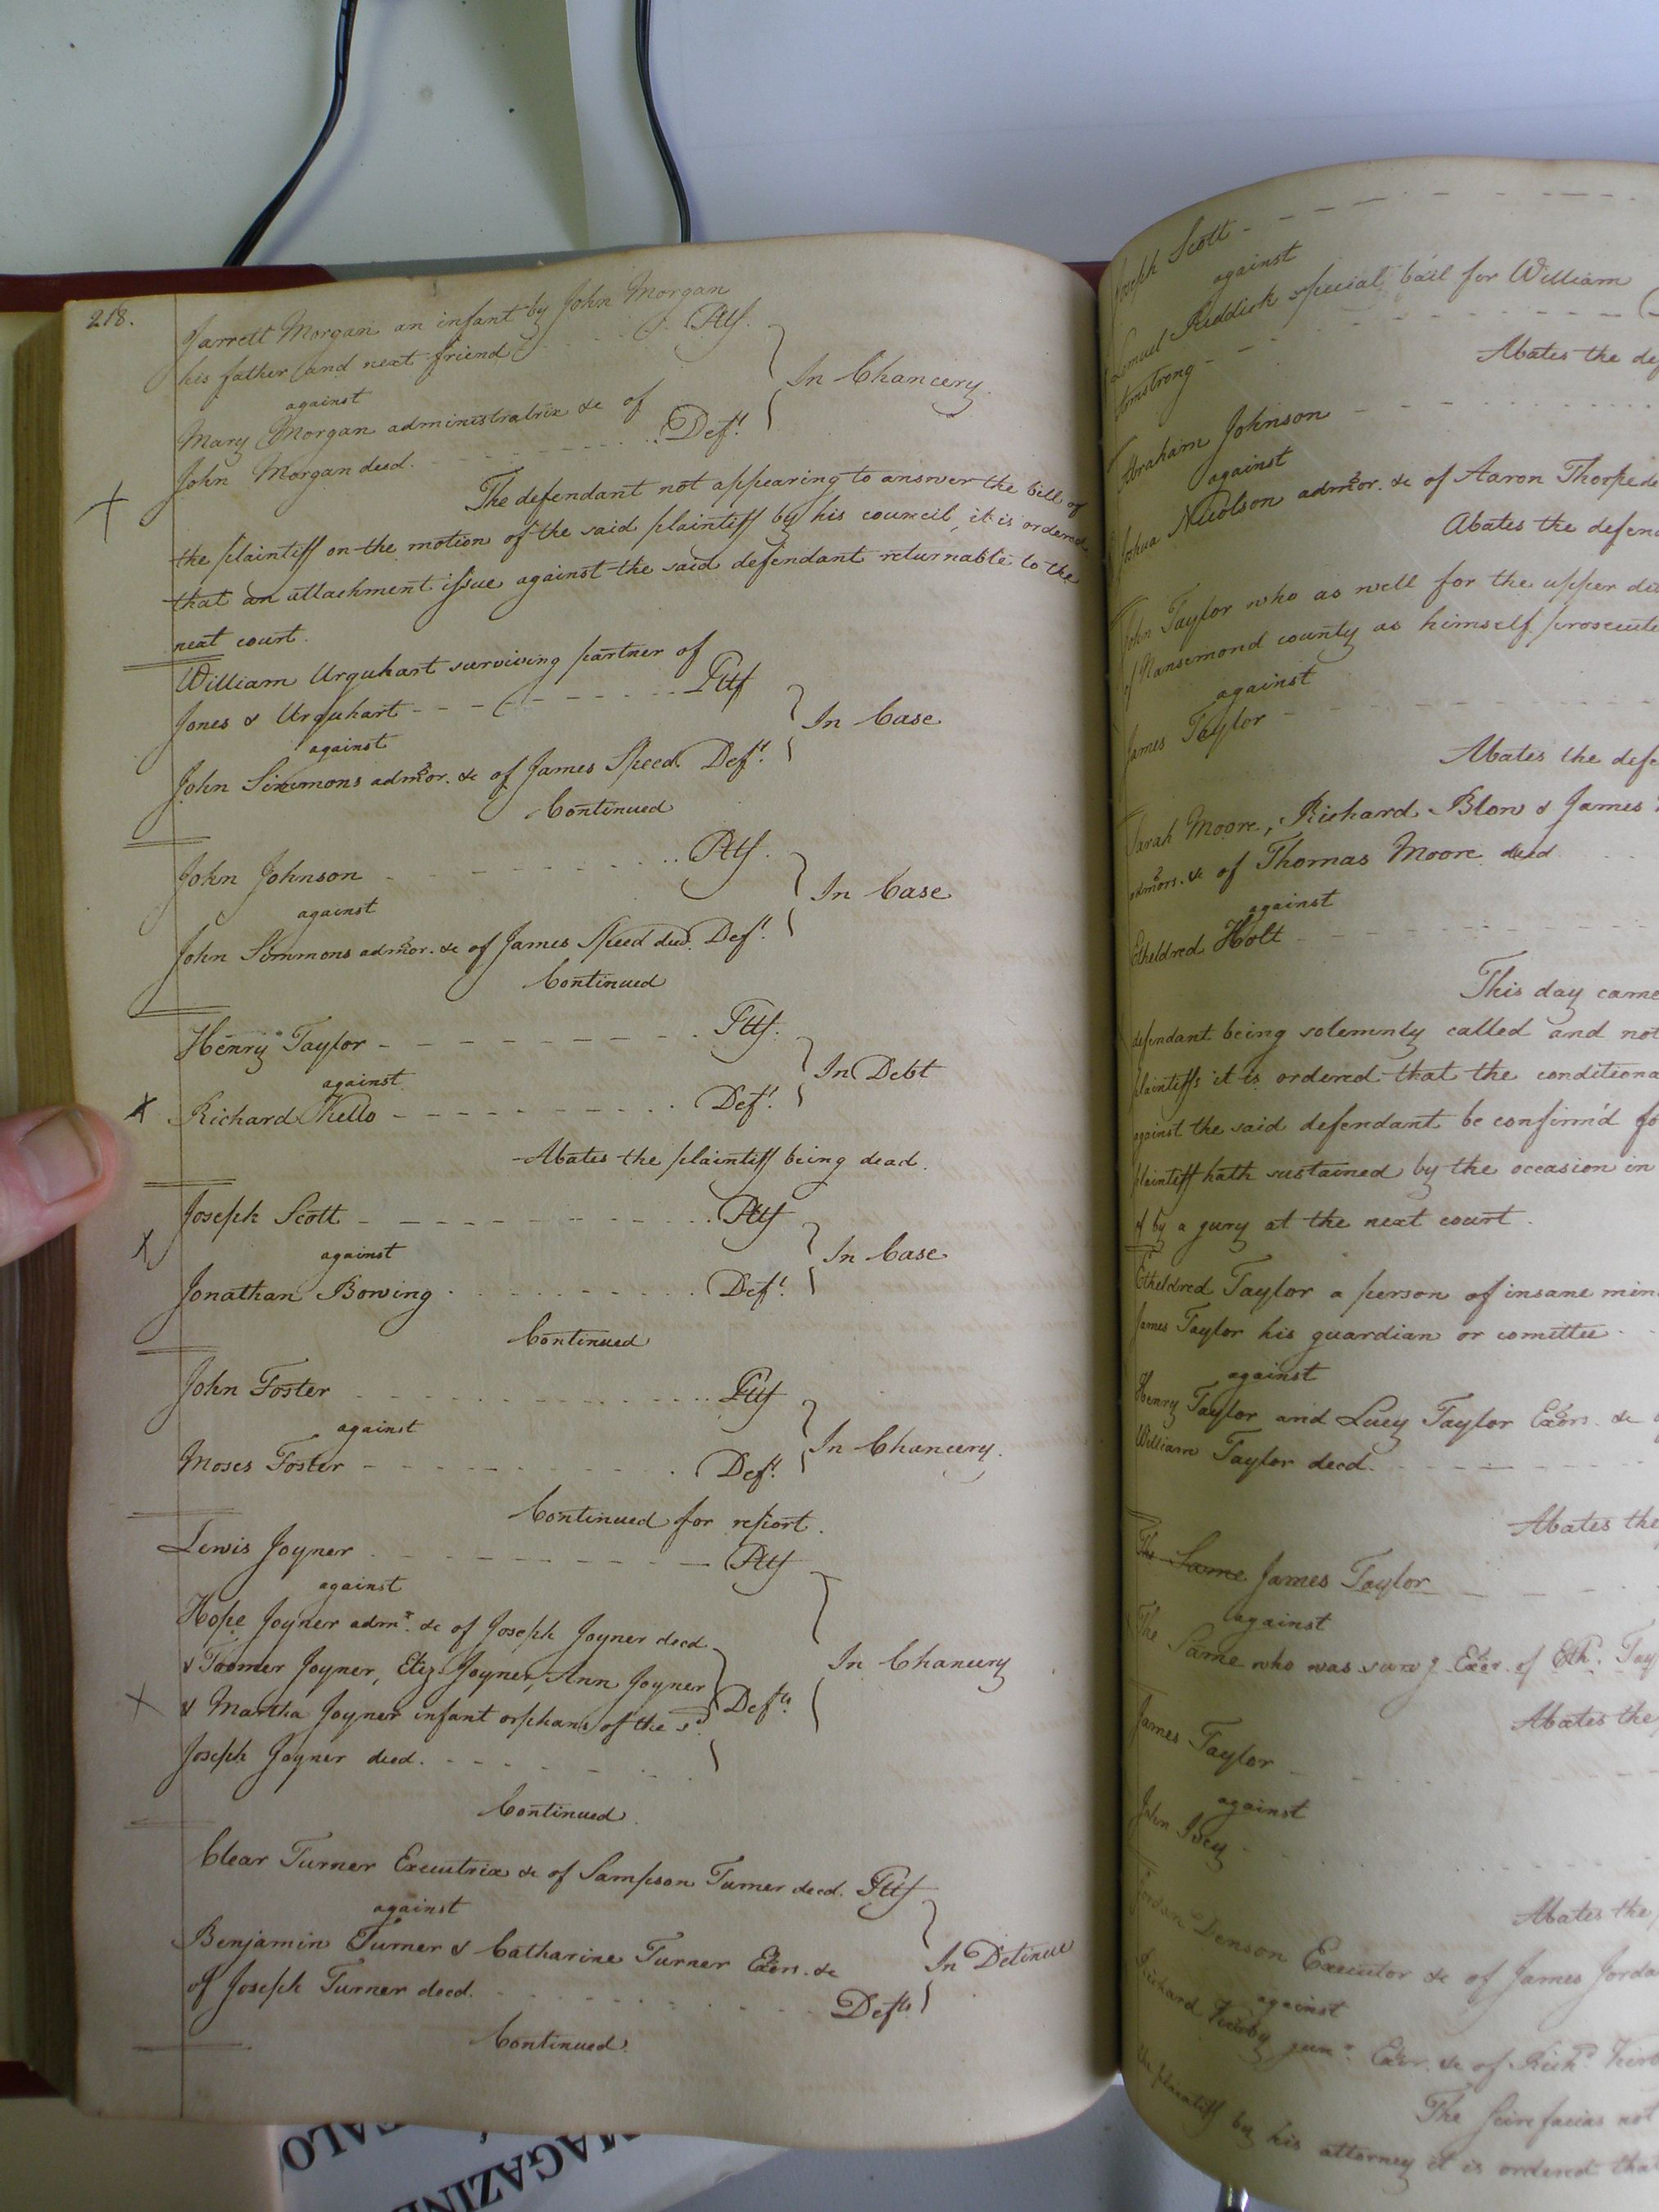 218.
Jarrett Morgan an infant by John Morgan
his father and next friend Pltf.
against
Mary Morgan administratrix &c of
John Morgan decd. Deft.
In Chancery.
The defendant not appearing to answer the bill of
the plaintiff on the motion of the said plaintiff by his council, it is ordered
that an attachment issue against the said defendant returnable to the
next court.
William Urquhart surviving partner of
Jones & Urquhart Pltf
against
John Simmons admor. &c of James Speed. Deft.
In Case
Continued
John Johnson Pltf.
against
John Simmons admor. &c of James Speed decd. Deft.
In Case
Continued
Henry Taylor Pltf.
against
Richard Kello Deft.
In Debt
Abates the plaintiff being dead.
Joseph Scott Pltf
against
Jonathan Bowing Deft.
In Case
Continued
John Foster Pltf
against
Moses Foster Deft.
In Chancery.
Continued for report.
Lewis Joyner Pltf
against
Hope Joyner admr. &c of Joseph Joyner decd
& Toomer Joyner, Eliz. Joyner, Ann Joyner
& Martha Joyner infant orphans of the sd.
Joseph Joyner decd.
Defts.
In Chancery
Continued.
Clear Turner Executrix &c of Sampson Turner decd. Pltf
against
Benjamin Turner & Catharine Turner Exors. &c
of Joseph Turner decd. Defts.
In Detinue
Continued.
Joseph Scott
against
Lemuel Riddick special bail for William
Armstrong
Abates the
Abraham Johnson
against
Joshua Nicolson admor. &c of Aaron Thorpe
Abates the
John Taylor who as well for the upper
of Nansemond county as himself
against
James Taylor
Abates the
Sarah Moore, Richard Blow & James
admors. &c of Thomas Moore decd
against
Etheldred Holt
This day came
defendant being solemnly called and not
plaintiffs it is ordered that the
against the said defendant be confirm'd
plaintiff hath sustained by the occasion in
of by a jury at the next court.
Etheldred Taylor a person of insane
James Taylor his guardian or comittee
against
Henry Taylor and Lucy Taylor Exors. &c
William Taylor decd.
Abates the
The Same James Taylor
against
The Same who was surv g. Exor. of Eth.
Abates the
James Taylor
against
John Ivey
Abates the
Jordan Denson Executor &c of James
against
Richard Kirby junr. Exor. &c of Richd.
The Scire facias not
the plaintiff by his attorney it is ordered that
MAGAZINE